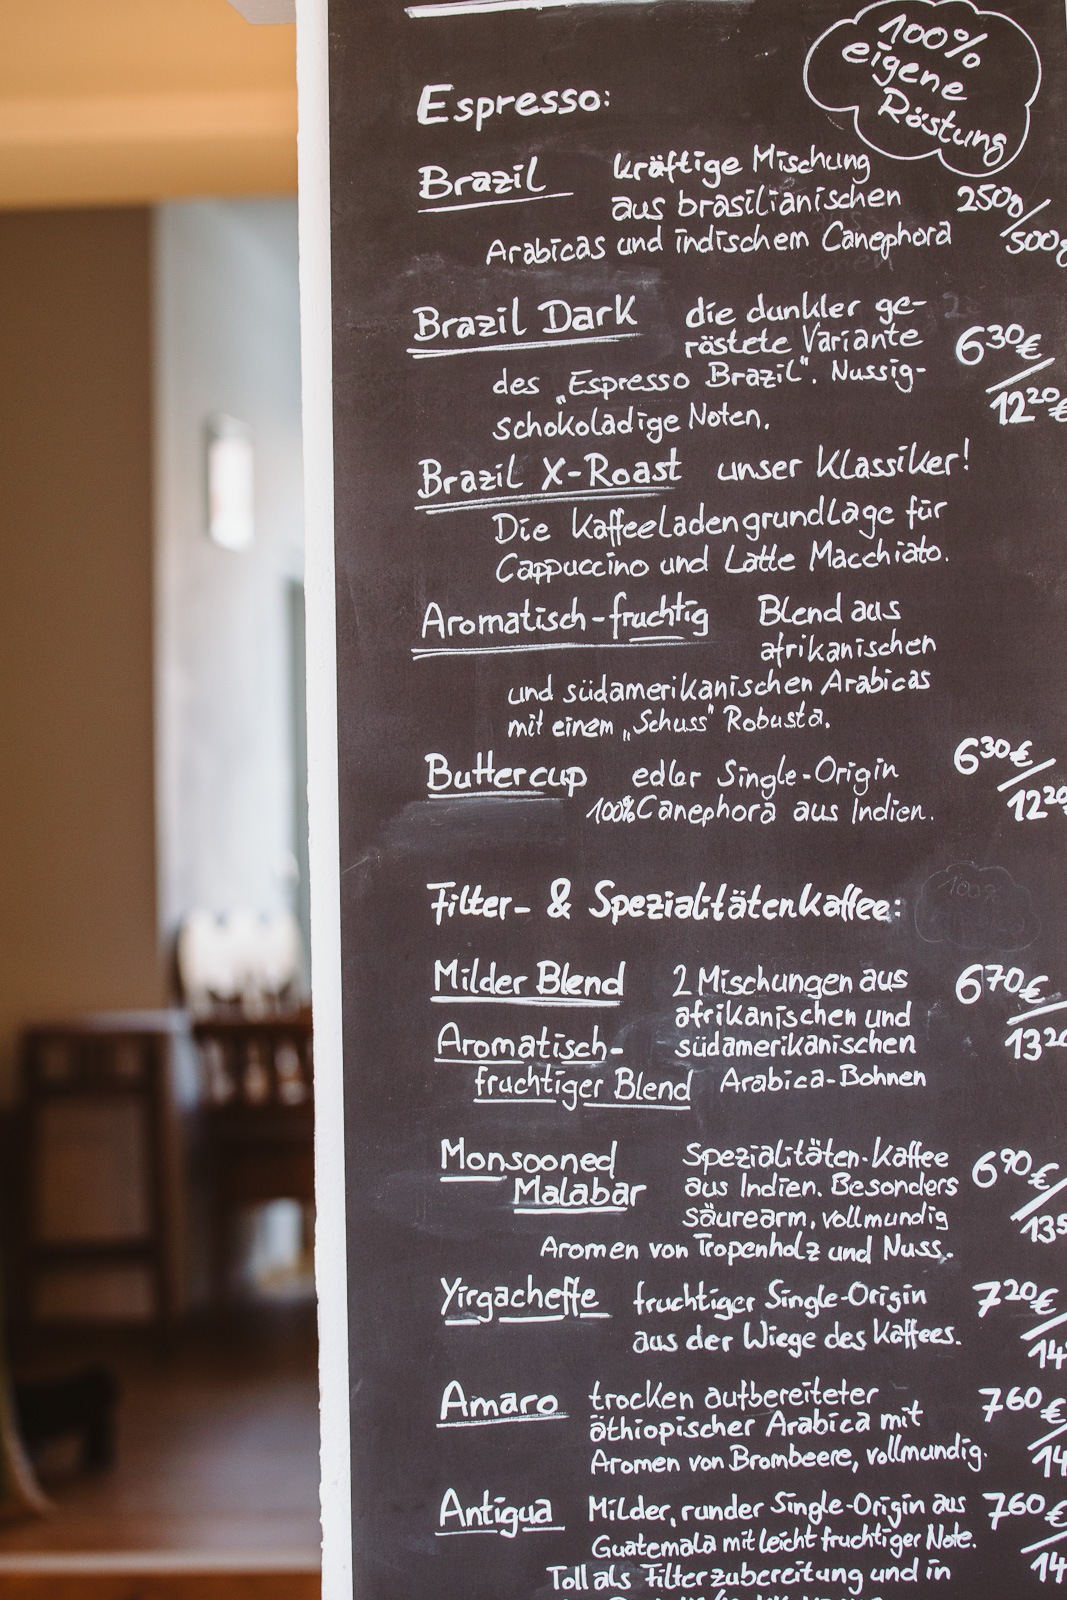 100%
eigene
Röstung
Espresso:
Brazil kräftige Mischung
aus brasilianischen 250g/
Arabicas und indischem Canephora 500g
Brazil Dark die dunkler ge-
röstete Variante 6 30 €/
des „Espresso Brazil". Nussig- 12 20 €
schokoladige Noten.
Brazil X-Roast unser Klassiker!
Die Kaffeeladengrundlage für
Cappuccino und Latte Macchiato.
Aromatisch-fruchtig Blend aus
afrikanischen
und südamerikanischen Arabicas
mit einem „Schuss" Robusta.
Buttercup edler Single-Origin 6 30 €/
100% Canephora aus Indien. 12 20
Filter- & Spezialitätenkaffee:
Milder Blend 2 Mischungen aus 6 70 €/
afrikanischen und
Aromatisch- südamerikanischen 13 20
fruchtiger Blend Arabica-Bohnen
Monsooned Spezialitäten-Kaffee 6 90 €/
Malabar aus Indien. Besonders
säurearm, vollmundig 13
Aromen von Tropenholz und Nuss.
Yirgacheffe fruchtiger Single-Origin 7 20 €/
aus der Wiege des Kaffees. 14
Amaro trocken aufbereiteter 7 60 €/
äthiopischer Arabica mit
Aromen von Brombeere, vollmundig. 14
Antigua Milder, runder Single-Origin aus 7 60 €/
Guatemala mit leicht fruchtiger Note.
Toll als Filterzubereitung und in 14